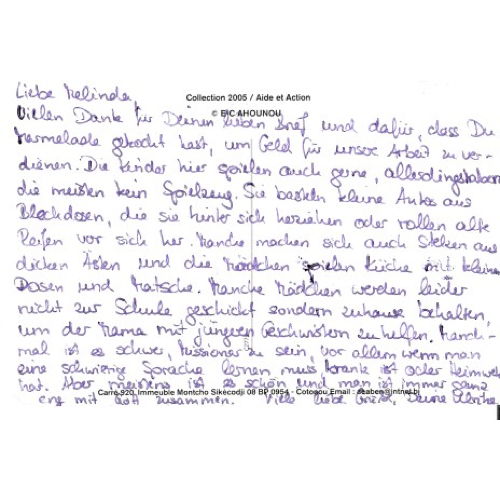 Liebe Melinda,
Collection 2005 / Aide et Action
© ERIC AHOUNOU
Vielen Dank für Deinen lieben Brief und dafür, dass Du
Marmelade gekocht hast, um Geld für unsere Arbeit zu ver-
dienen. Die Kinder hier spielen auch gerne, allerdings haben
die meisten kein Spielzeug. Sie basteln kleine Autos aus
Blechdosen, die sie hinter sich herziehen oder rollen alte
Reifen vor sich her. Manche machen sich auch Stelzen aus
dicken Ästen und die Mädchen spielen Küche mit kleinen
Dosen und Matsche. Manche Mädchen werden leider
nicht zur Schule geschickt sondern zuhause behalten,
um der Mama mit jüngeren Geschwistern zu helfen. Manch-
mal ist es schwer, Missionar zu sein, vor allem wenn man
eine schwierige Sprache lernen muss, krank ist oder Heimweh
hat. Aber meistens ist es schön und man ist immer ganz
Carré 920, Immeuble Montcho Sikècodji 08 BP 0954 - Cotonou Email : @intnet.bj
eng mit Gott zusammen. Viele liebe Grüße, Deine